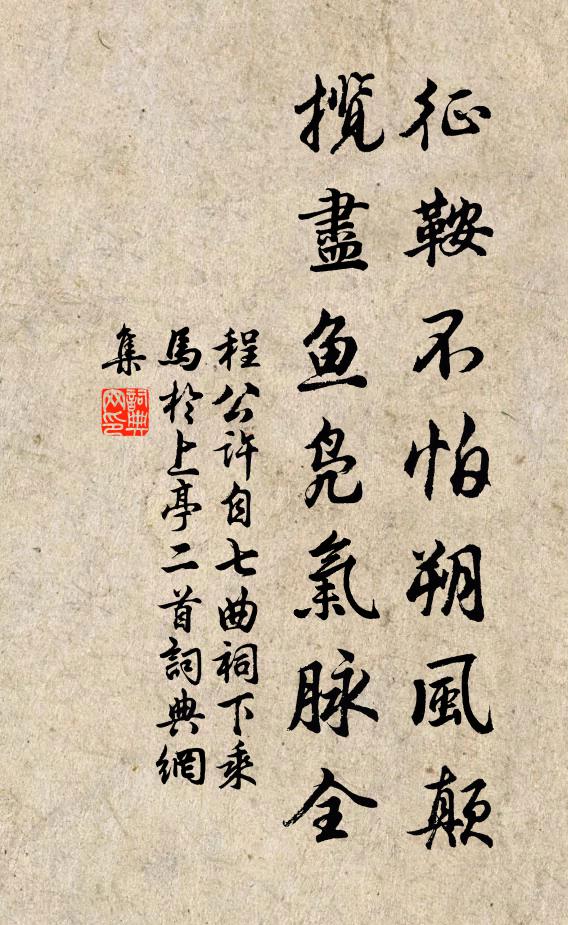 征鞍不怕朔風顛
攬盡魚鳧氣脉全
程公許自七曲祠下乘
馬於上亭二首詞典網
集
詞典網印